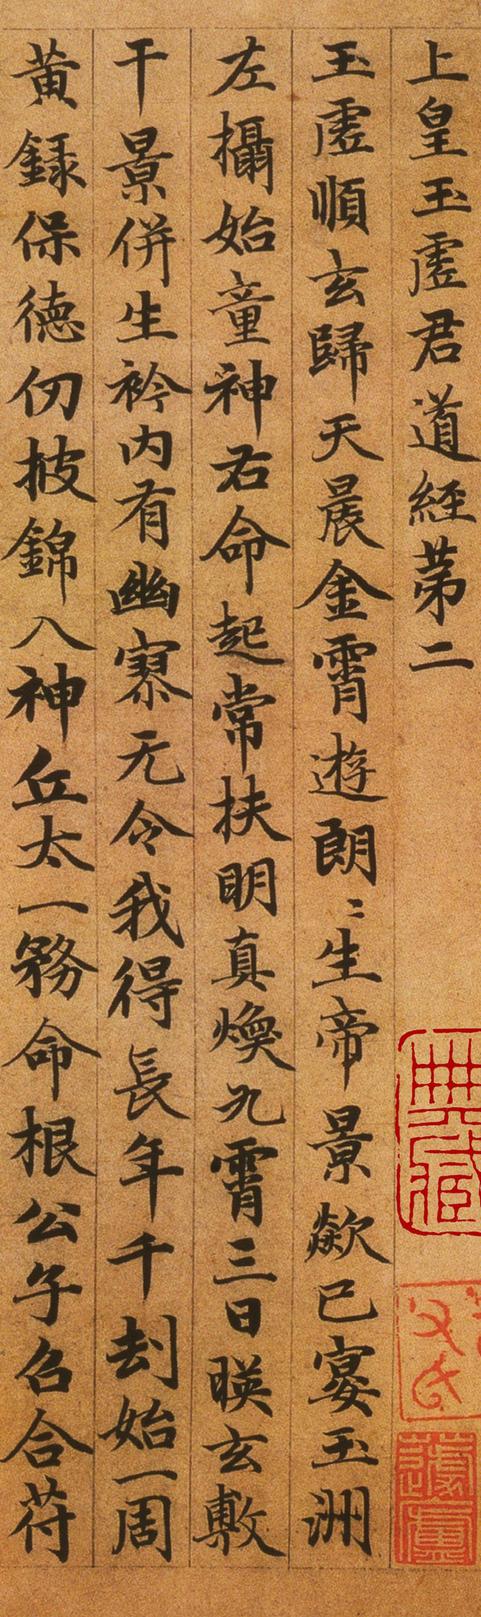 上皇玉虛君道經苐二
玉虛順玄歸天晨金霄遊朗〻生帝景歘已宴玉洲
左攝始童神右命起常扶明真煥九霄三日暎玄敷
干景併生衿内有幽寮无令我得長年千刦始一周
黃録保德仞披錦八神丘太一務命根公子名合苻
典藏